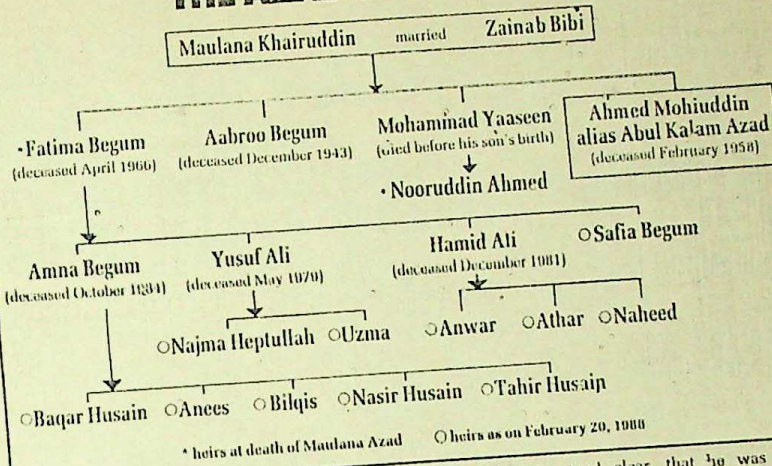 Maulana Khairuddin married Zainab Bibi
•Fatima Begum
(deceased April 1966)
Aabroo Begum
(deceased December 1943)
Mohammad Yaaseen
(died before his son's birth)
• Nooruddin Ahmed
Ahmed Mohiuddin
alias Abul Kalam Azad
(deceased February 1958)
Amna Begum
(deceased October 1984)
Yusuf Ali
(deceased May 1979)
Hamid Ali
(deceased December 1981)
○Safia Begum
○Najma Heptullah ○Uzma
○Anwar ○Athar ○Naheed
○Baqar Husain ○Anees ○Bilqis ○Nasir Husain ○Tahir Husain
* heirs at death of Maulana Azad ○heirs as on February 20, 1988
clear that he was